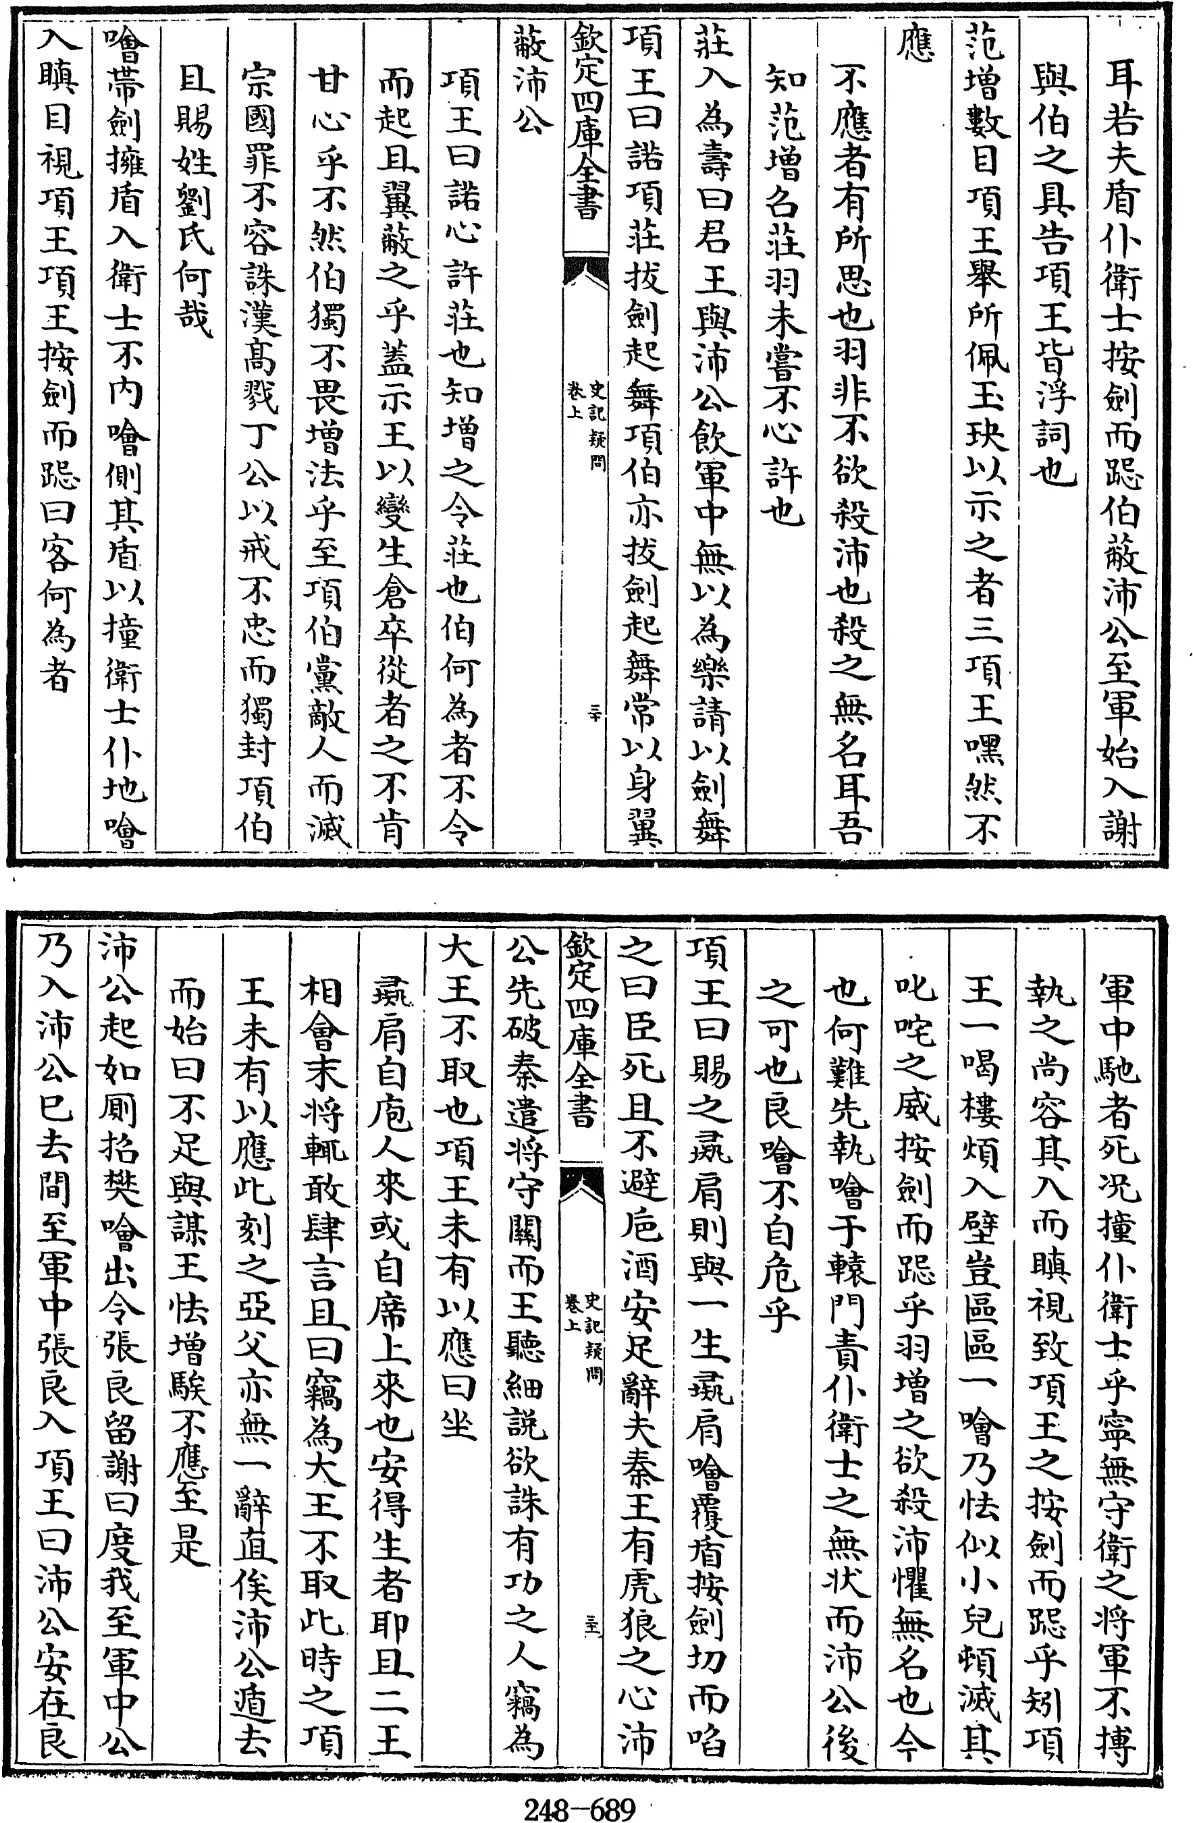 耳若夫盾仆衛士按劍而跽伯蔽沛公至軍始入謝
與伯之具告項王皆浮詞也
范增數目項王舉所佩玉玦以示之者三項王嘿然不
應
不應者有所思也羽非不欲殺沛也殺之無名耳吾
知范增名莊羽未嘗不心許也
莊入為壽曰君王與沛公飲軍中無以為樂請以劍舞
項王曰諾項莊拔劍起舞項伯亦拔劍起舞常以身翼
欽定四庫全書
史記疑問
卷上
三十
蔽沛公
項王曰諾心許莊也知增之令莊也伯何為者不令
而起且翼蔽之乎蓋示王以變生倉卒從者之不肯
甘心乎不然伯獨不畏增法乎至項伯黨敵人而滅
宗國罪不容誅漢高戮丁公以戒不忠而獨封項伯
且賜姓劉氏何哉
噲帶劍擁盾入衛士不內噲側其盾以撞衛士仆地噲
入瞋目視項王項王按劍而跽曰客何為者
軍中馳者死况撞仆衛士乎寜無守衛之將軍不搏
執之尚容其入而瞋視致項王之按劍而跽乎矧項
王一喝樓煩入壁豈區區一噲乃怯似小兒頓滅其
叱咤之威按劍而跽乎羽增之欲殺沛懼無名也今
也何難先執噲于轅門責仆衛士之無狀而沛公後
之可也良噲不自危乎
項王曰賜之彘肩則與一生彘肩噲覆盾按劍切而啗
之曰臣死且不避卮酒安足辭夫秦王有虎狼之心沛
欽定四庫全書
史記疑問
卷上
三十一
公先破秦遣將守關而王聽細說欲誅有功之人竊為
大王不取也項王未有以應曰坐
彘肩自庖人來或自席上來也安得生者耶且二王
相會末將輒敢肆言且曰竊為大王不取此時之項
王未有以應此刻之亞父亦無一辭直俟沛公遁去
而始曰不足與謀王怯增騃不應至是
沛公起如厠招樊噲出令張良留謝曰度我至軍中公
乃入沛公已去間至軍中張良入項王曰沛公安在良
248-689